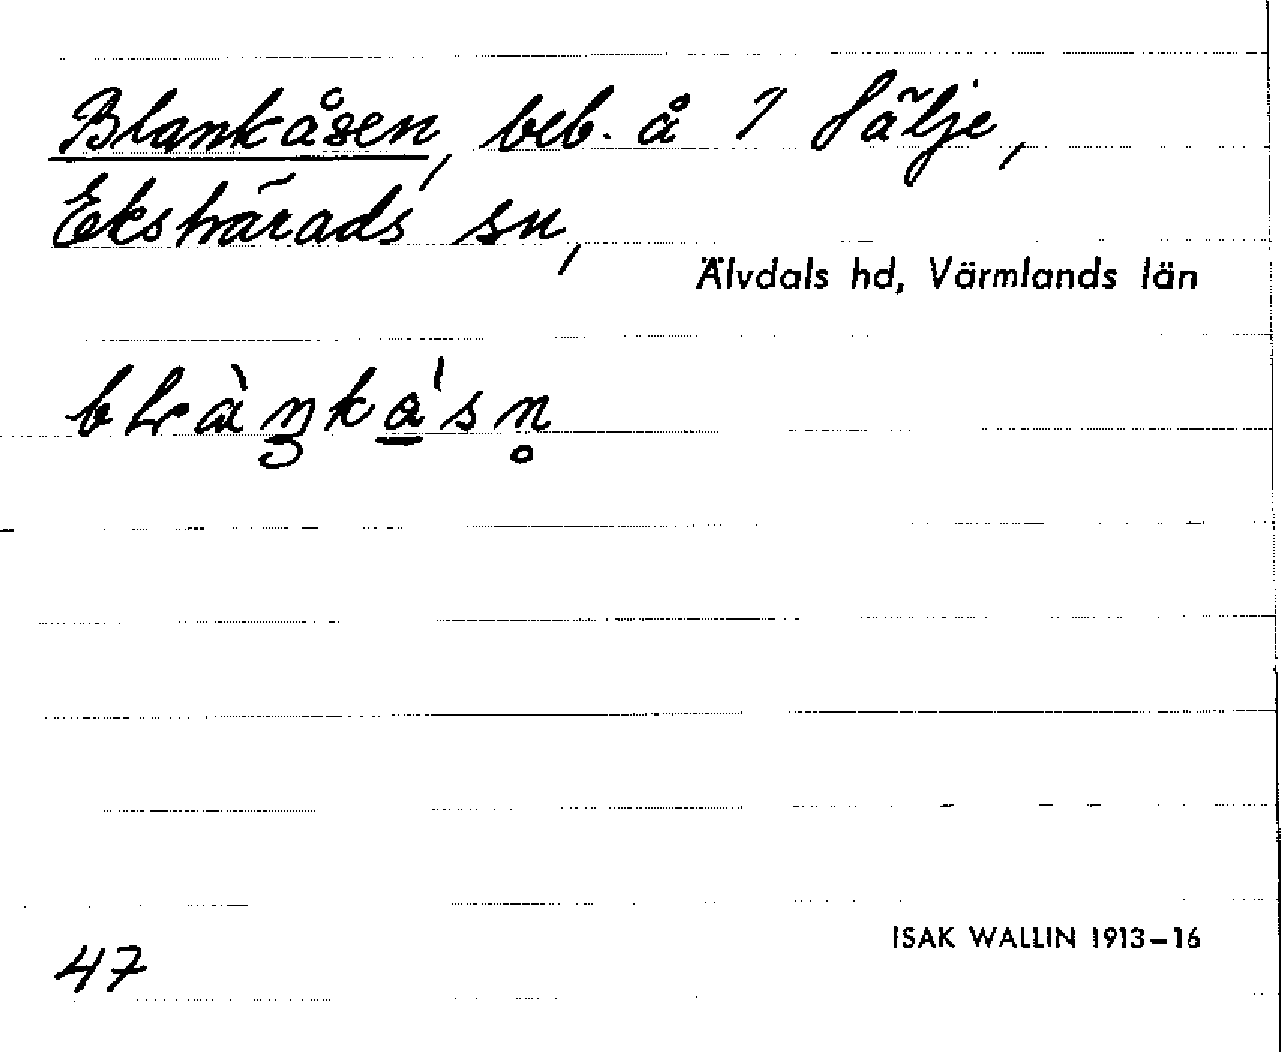 Blankåsen, beb. å 1 Sälje,
Ekshärads sn,
Älvdals hd, Värmlands län
blàŋka̲'sn̥
47
ISAK WALLIN 1913–16